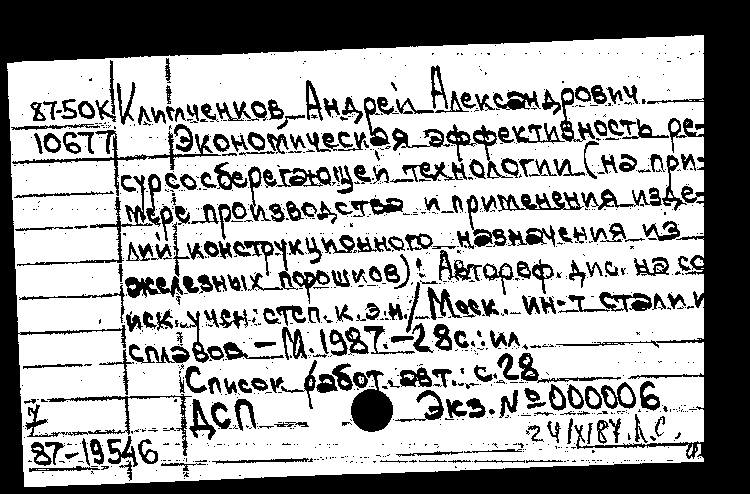 87-50К Климченков, Андрей Александрович.
10677 Экономическая эффективность ре-
сурсосберегающей технологии (на при-
мере производства и применения изде-
лий конструкционного назначения из
железных порошков): Автореф. дис. на со
иск. учен. степ. к.э.н/ Моск. ин-т стали и
сплавов. - М. 1987. - 28с.: ил.
Список работ. авт.: с.28
ДСП Экз. № 000006.
24/X/87. Л.С.
87-19546